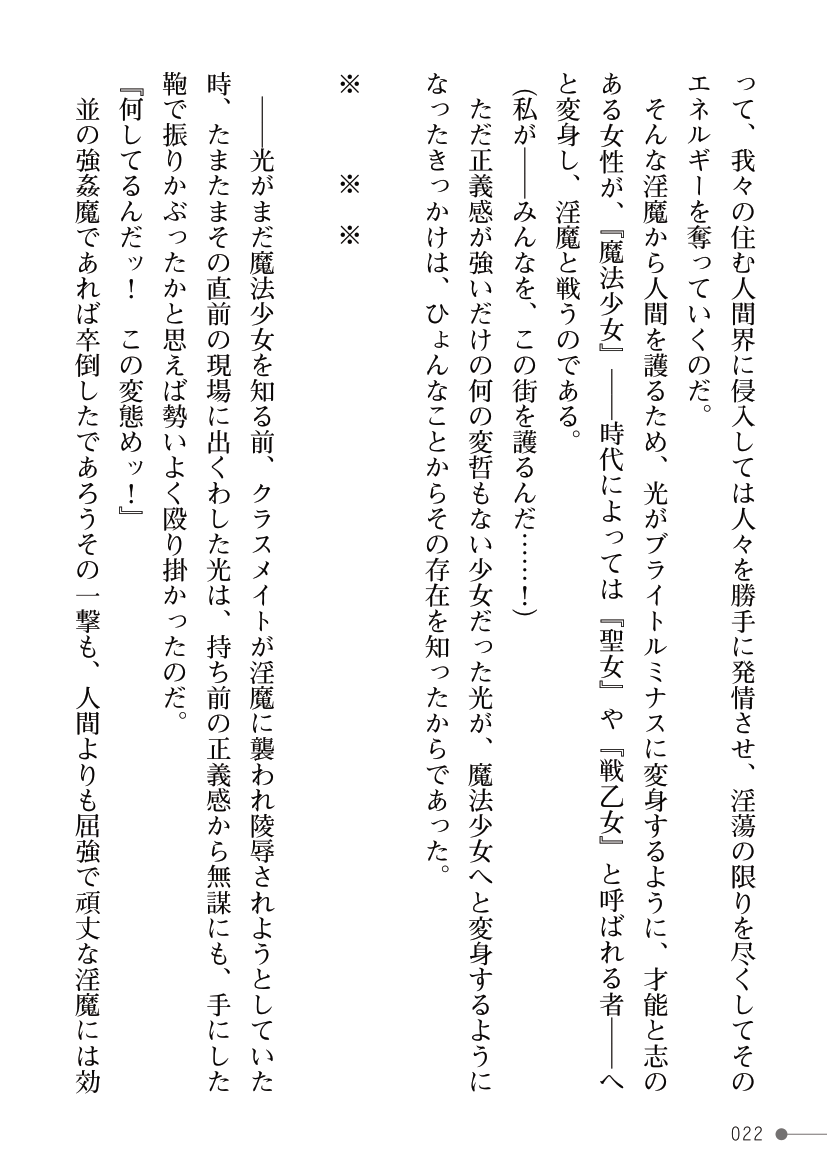 って、我々の住む人間界に侵入しては人々を勝手に発情させ、淫蕩の限りを尽くしてその
エネルギーを奪っていくのだ。
そんな淫魔から人間を護るため、光がブライトルミナスに変身するように、才能と志の
ある女性が、『魔法少女』――時代によっては『聖女』や『戦乙女』と呼ばれる者――へ
と変身し、淫魔と戦うのである。
(私が――みんなを、この街を護るんだ……！)
ただ正義感が強いだけの何の変哲もない少女だった光が、魔法少女へと変身するように
なったきっかけは、ひょんなことからその存在を知ったからであった。
※　※　※
――光がまだ魔法少女を知る前、クラスメイトが淫魔に襲われ陵辱されようとしていた
時、たまたまその直前の現場に出くわした光は、持ち前の正義感から無謀にも、手にした
鞄で振りかぶったかと思えば勢いよく殴り掛かったのだ。
『何してるんだッ！　この変態めッ！』
並の強姦魔であれば卒倒したであろうその一撃も、人間よりも屈強で頑丈な淫魔には効
022